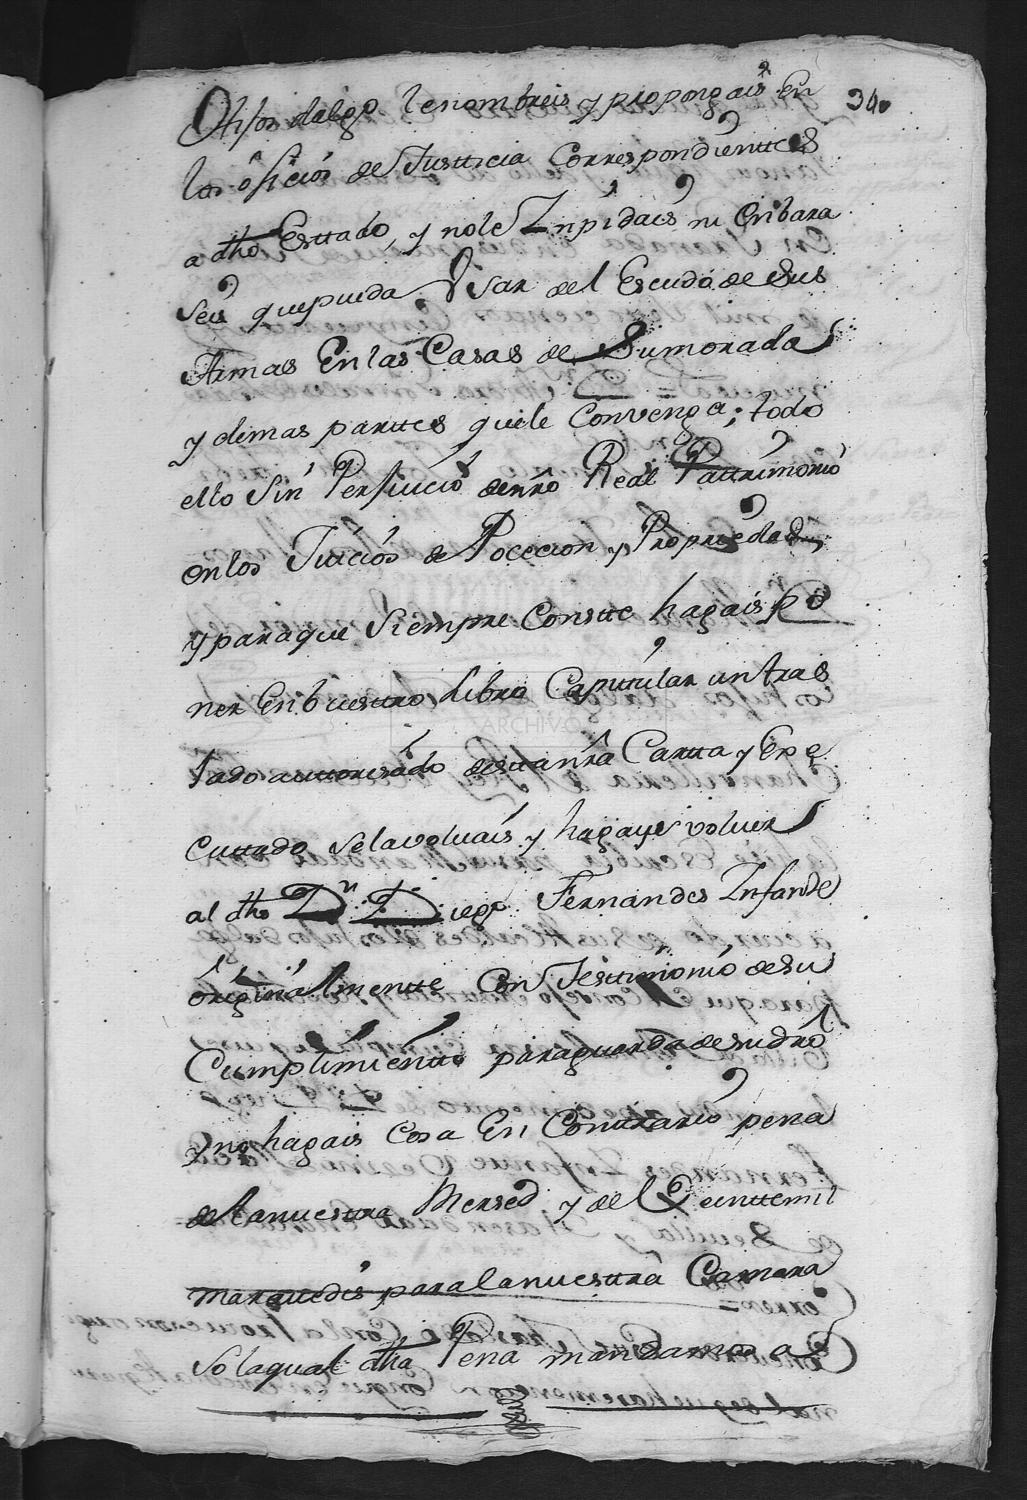 34.
Ohisos dalgo lenombreis y propongais En
los oficios de Justticia Correspondienttes
a dho Esttado, y nole Inpidais ni Enbara
seis quepueda Vsar del Escudo de Sus
Armas En las Casas de Sumorada
y demas parttes quele Convenga; todo
ello Sin Perjuicio denrõ Real Pattrimonio
enlos Juicios de Pocecion y Propriedad
y paraque Siempre Constte hagais po
ner Enbuestro Libro Capitular un tras
lado auttorisado destta nrã Cartta y Exe
cuttado Selavolvais y hagays volver
al dho Dn. Diego Fernandes Infante
originalmentte Con Testtimonio de Su
Cumplimientto paraguarda de Sudrõ
y no hagais cosa En Conttrario pena
delanuestra Mersed y de Veinttemil
maravedis para la nuesttra Camara
Solaqual dha Pena mandamos a
ARCHIVO